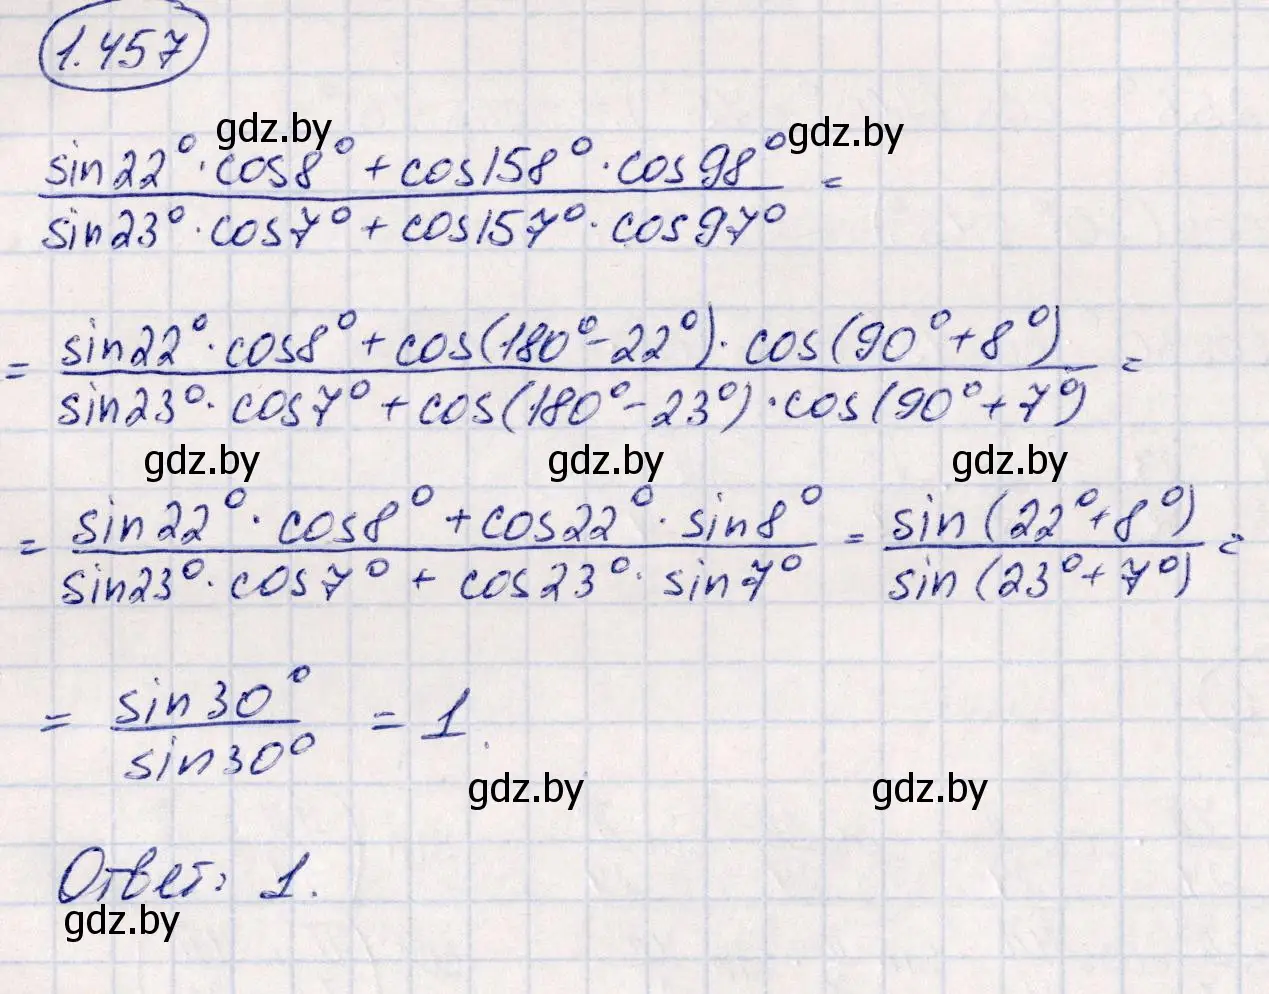 1.457
gdz.by gdz.by
sin22°·cos8° + cos158°·cos98° =
sin23°·cos7° + cos157°·cos97°
= sin22°·cos8° + cos(180°-22°)·cos(90°+8°) =
sin23°·cos7° + cos(180°-23°)·cos(90°+7°)
gdz.by gdz.by gdz.by
= sin22°·cos8° + cos22°·sin8° = sin(22°+8°) =
sin23°·cos7° + cos23°·sin7° sin(23°+7°)
= sin30° = 1.
sin30°
gdz.by gdz.by
Ответ: 1.
gdz.by